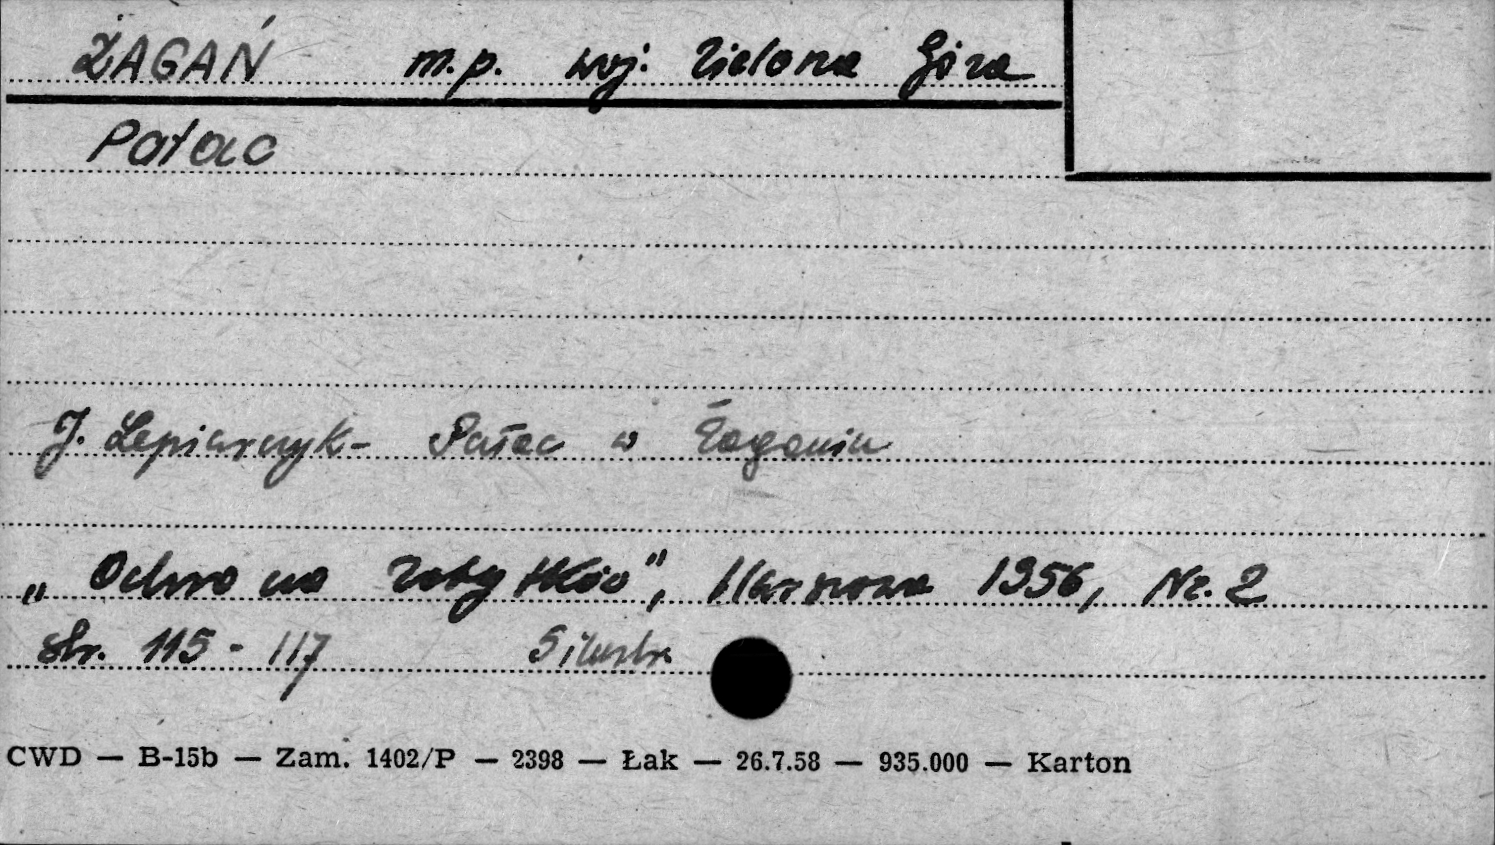 ŻAGAŃ m.p. woj. Zielona Góra
Pałac
J. Lepiarczyk - Pałac w Żaganiu
„Ochrona Zabytków", Warszawa 1956, Nr. 2
str. 115 - 117 5 ilustr.
CWD — B-15b — Zam. 1402/P — 2398 — Łak — 26.7.58 — 935.000 — Karton